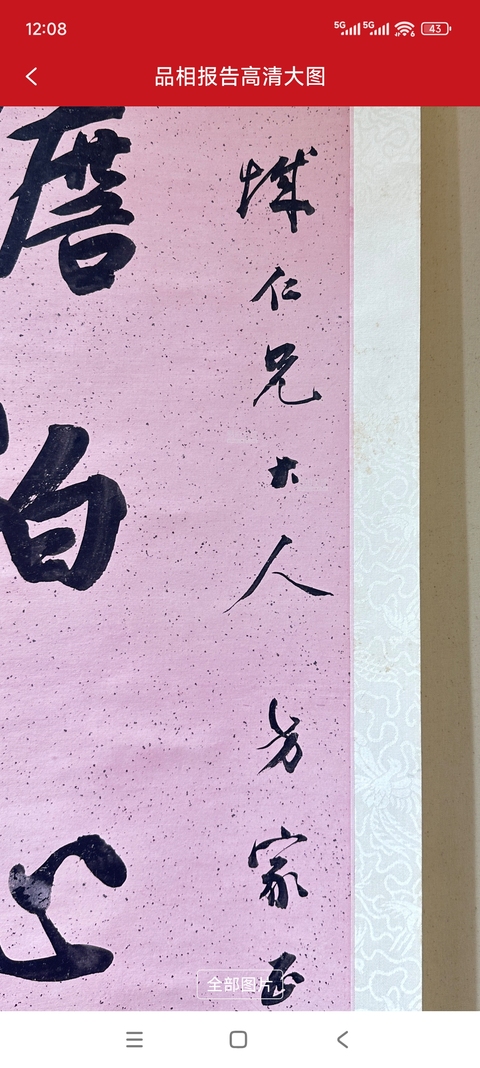 12:08
5G 5G 6 43
品相报告高清大图
城仁兄大人方家正
心
全部图片